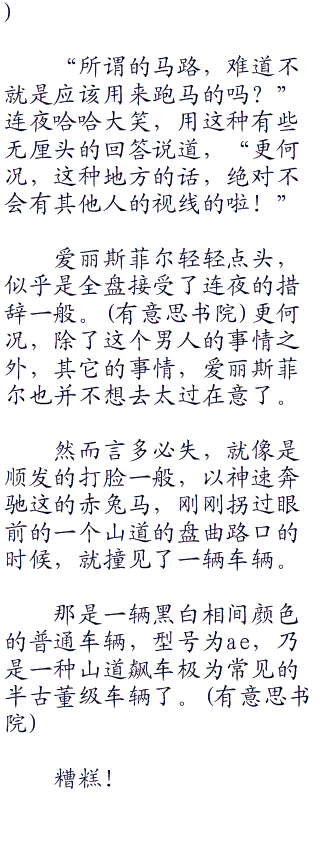 )
“所谓的马路，难道不
就是应该用来跑马的吗？”
连夜哈哈大笑，用这种有些
无厘头的回答说道，“更何
况，这种地方的话，绝对不
会有其他人的视线的啦！”
爱丽斯菲尔轻轻点头，
似乎是全盘接受了连夜的措
辞一般。(有意思书院)更何
况，除了这个男人的事情之
外，其它的事情，爱丽斯菲
尔也并不想去太过在意了。
然而言多必失，就像是
顺发的打脸一般，以神速奔
驰这的赤兔马，刚刚拐过眼
前的一个山道的盘曲路口的
时候，就撞见了一辆车辆。
那是一辆黑白相间颜色
的普通车辆，型号为ae，乃
是一种山道飙车极为常见的
半古董级车辆了。(有意思书
院)
糟糕！